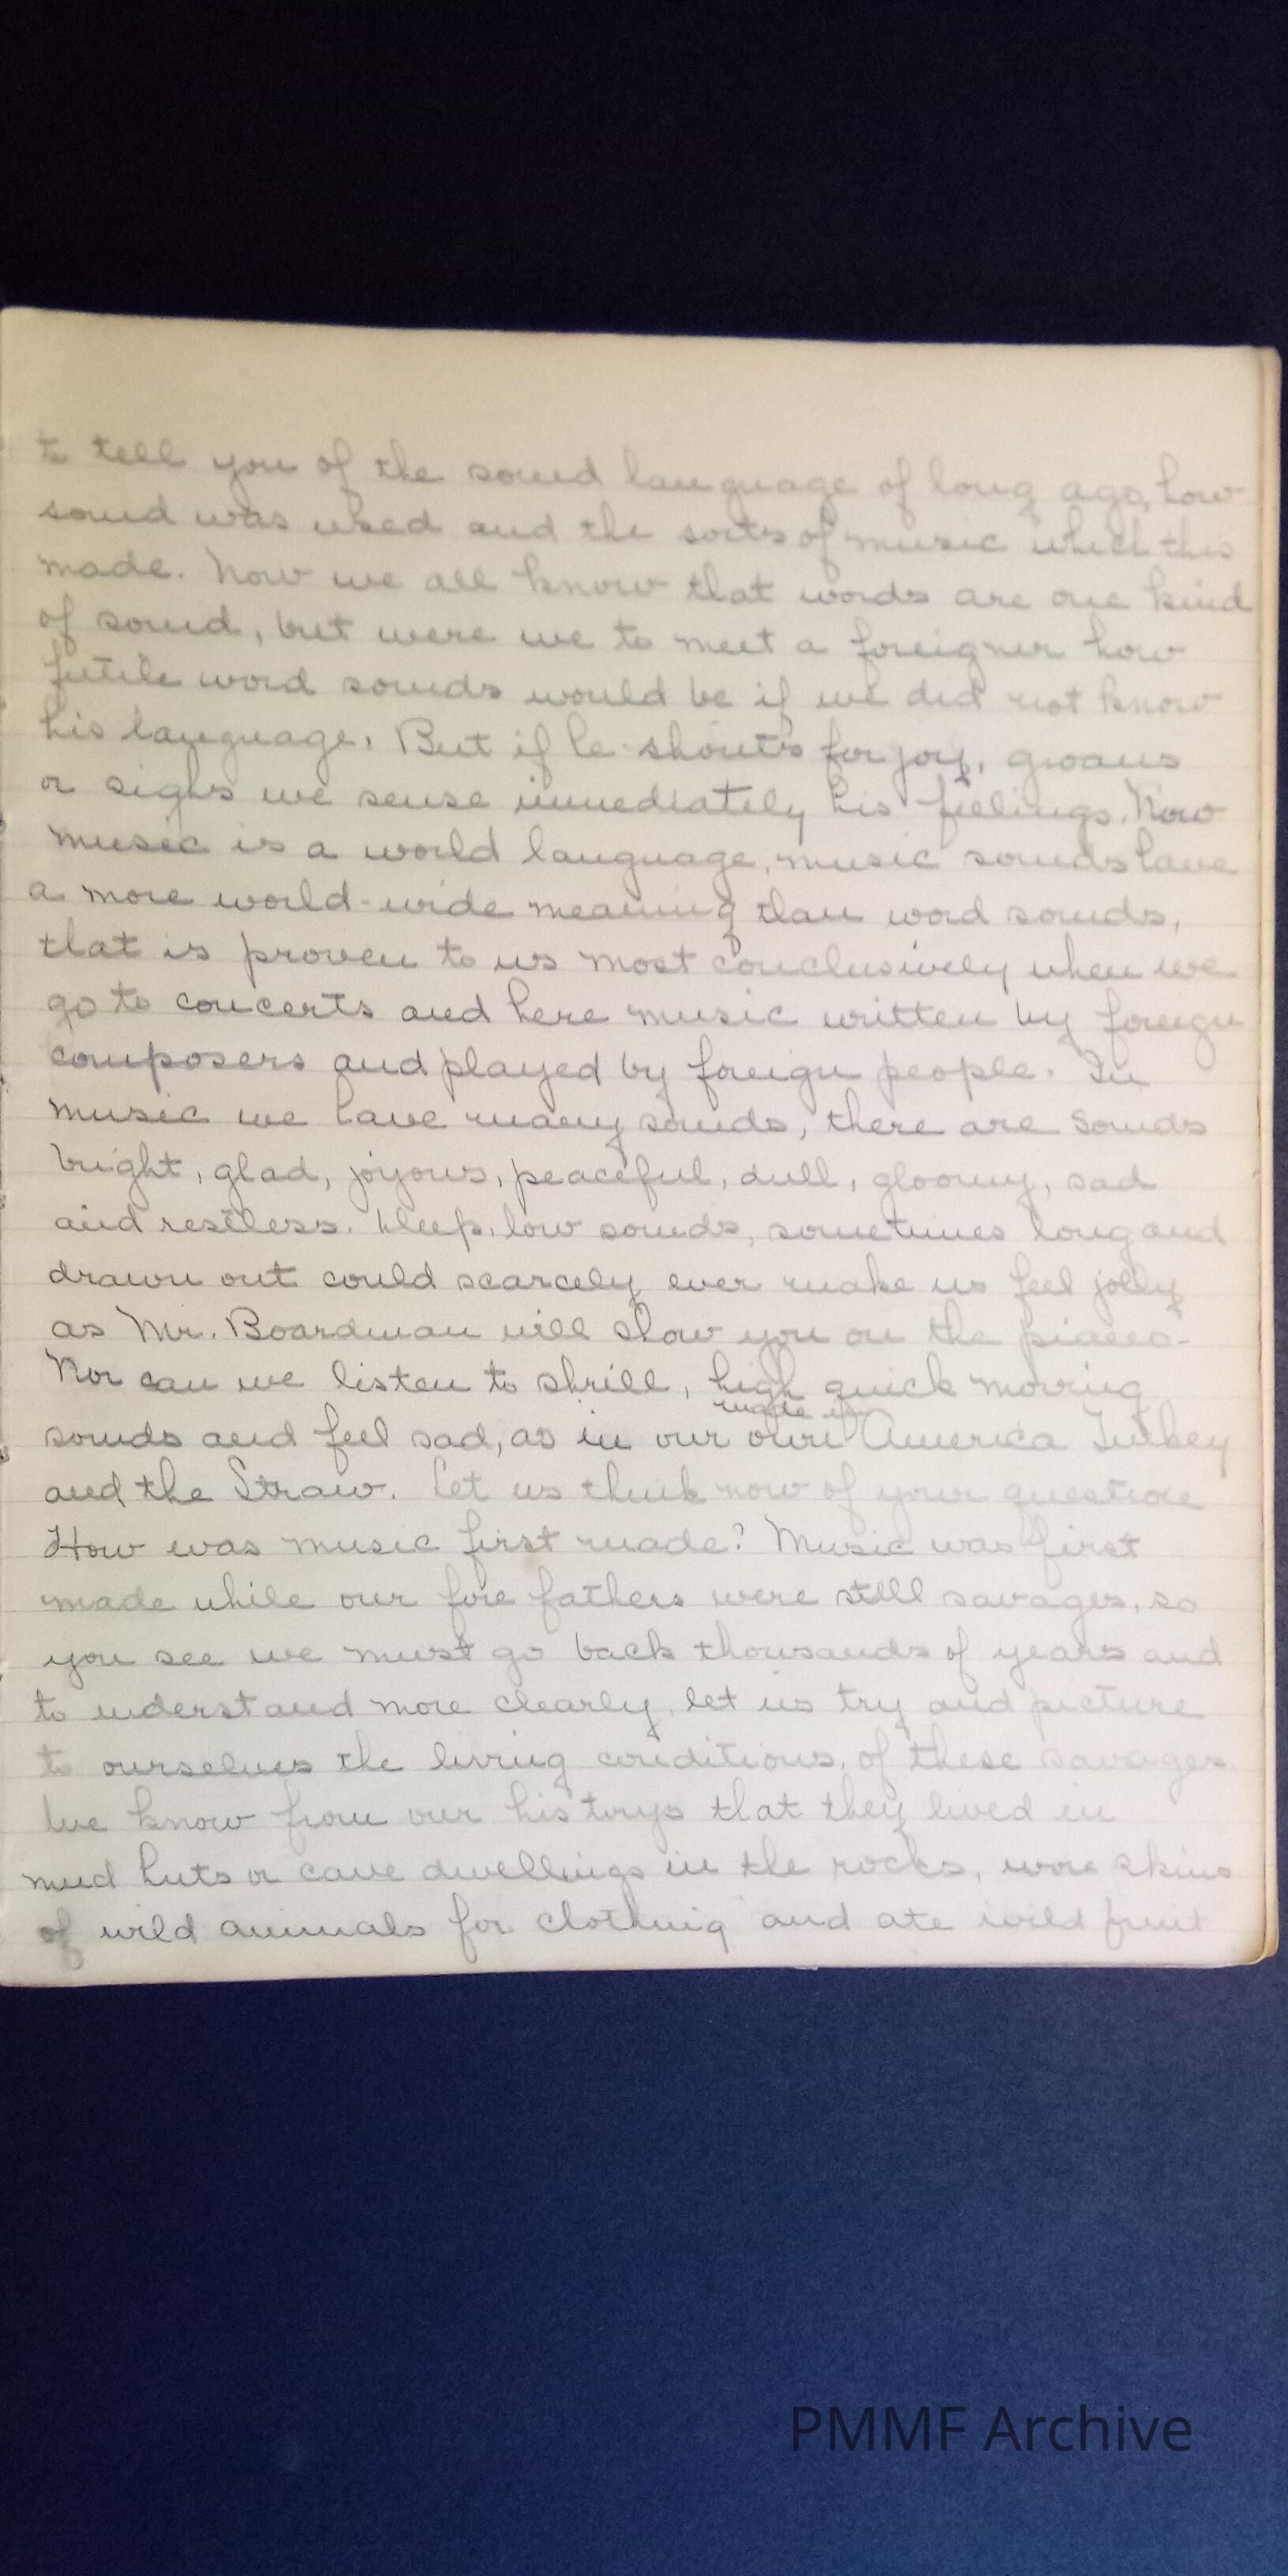 to tell you of the sound language of long ago, how
sound was used and the sorts of music which this
made. Now we all know that words are one kind
of sound, but were we to meet a foreigner how
futile word sounds would be if we did not know
his language. But if he shouts for joy, groans
or sighs we sense immediately his feelings. Now
music is a world language, music sounds have
a more world-wide meaning than word sounds,
that is proven to us most conclusively when we
go to concerts and here music written by foreign
composers and played by foreign people. In
music we have many sounds, there are sounds
bright, glad, joyous, peaceful, dull, gloomy, sad
and restless. Deep, low sounds, sometimes long and
drawn out could scarcely ever make us feel jolly
as Mr. Boardman will show you on the piano.
Nor can we listen to shrill, high quick moving
made in
sounds and feel sad, as in our own America Turkey
and the Straw. Let us think now of your question
How was music first made? Music was first
made while our fore fathers were still savages, so
you see we must go back thousands of years and
to understand more clearly, let us try and picture
to ourselves the living conditions, of these savages
We know from our historys that they lived in
mud huts or cave dwellings in the rocks, wore skins
of wild animals for clothing and ate wild fruit
PMMF Archive